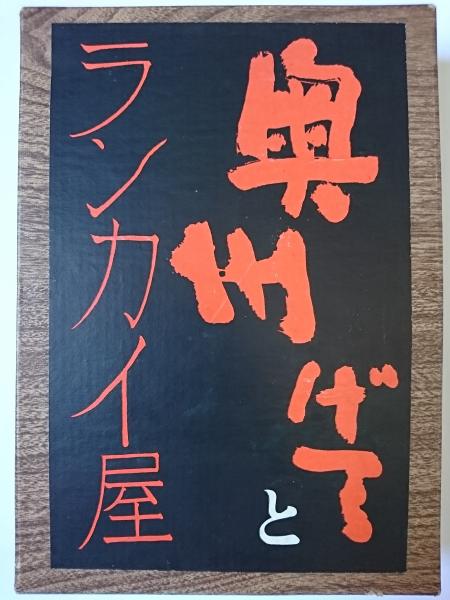 奥州げてと
ランカイ屋